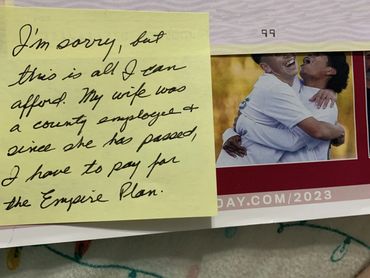 99
I'm sorry, but
this is all I can
afford. My wife was
a county employee &
since she has passed,
I have to pay for
the Empire Plan.
DAY.COM/2023